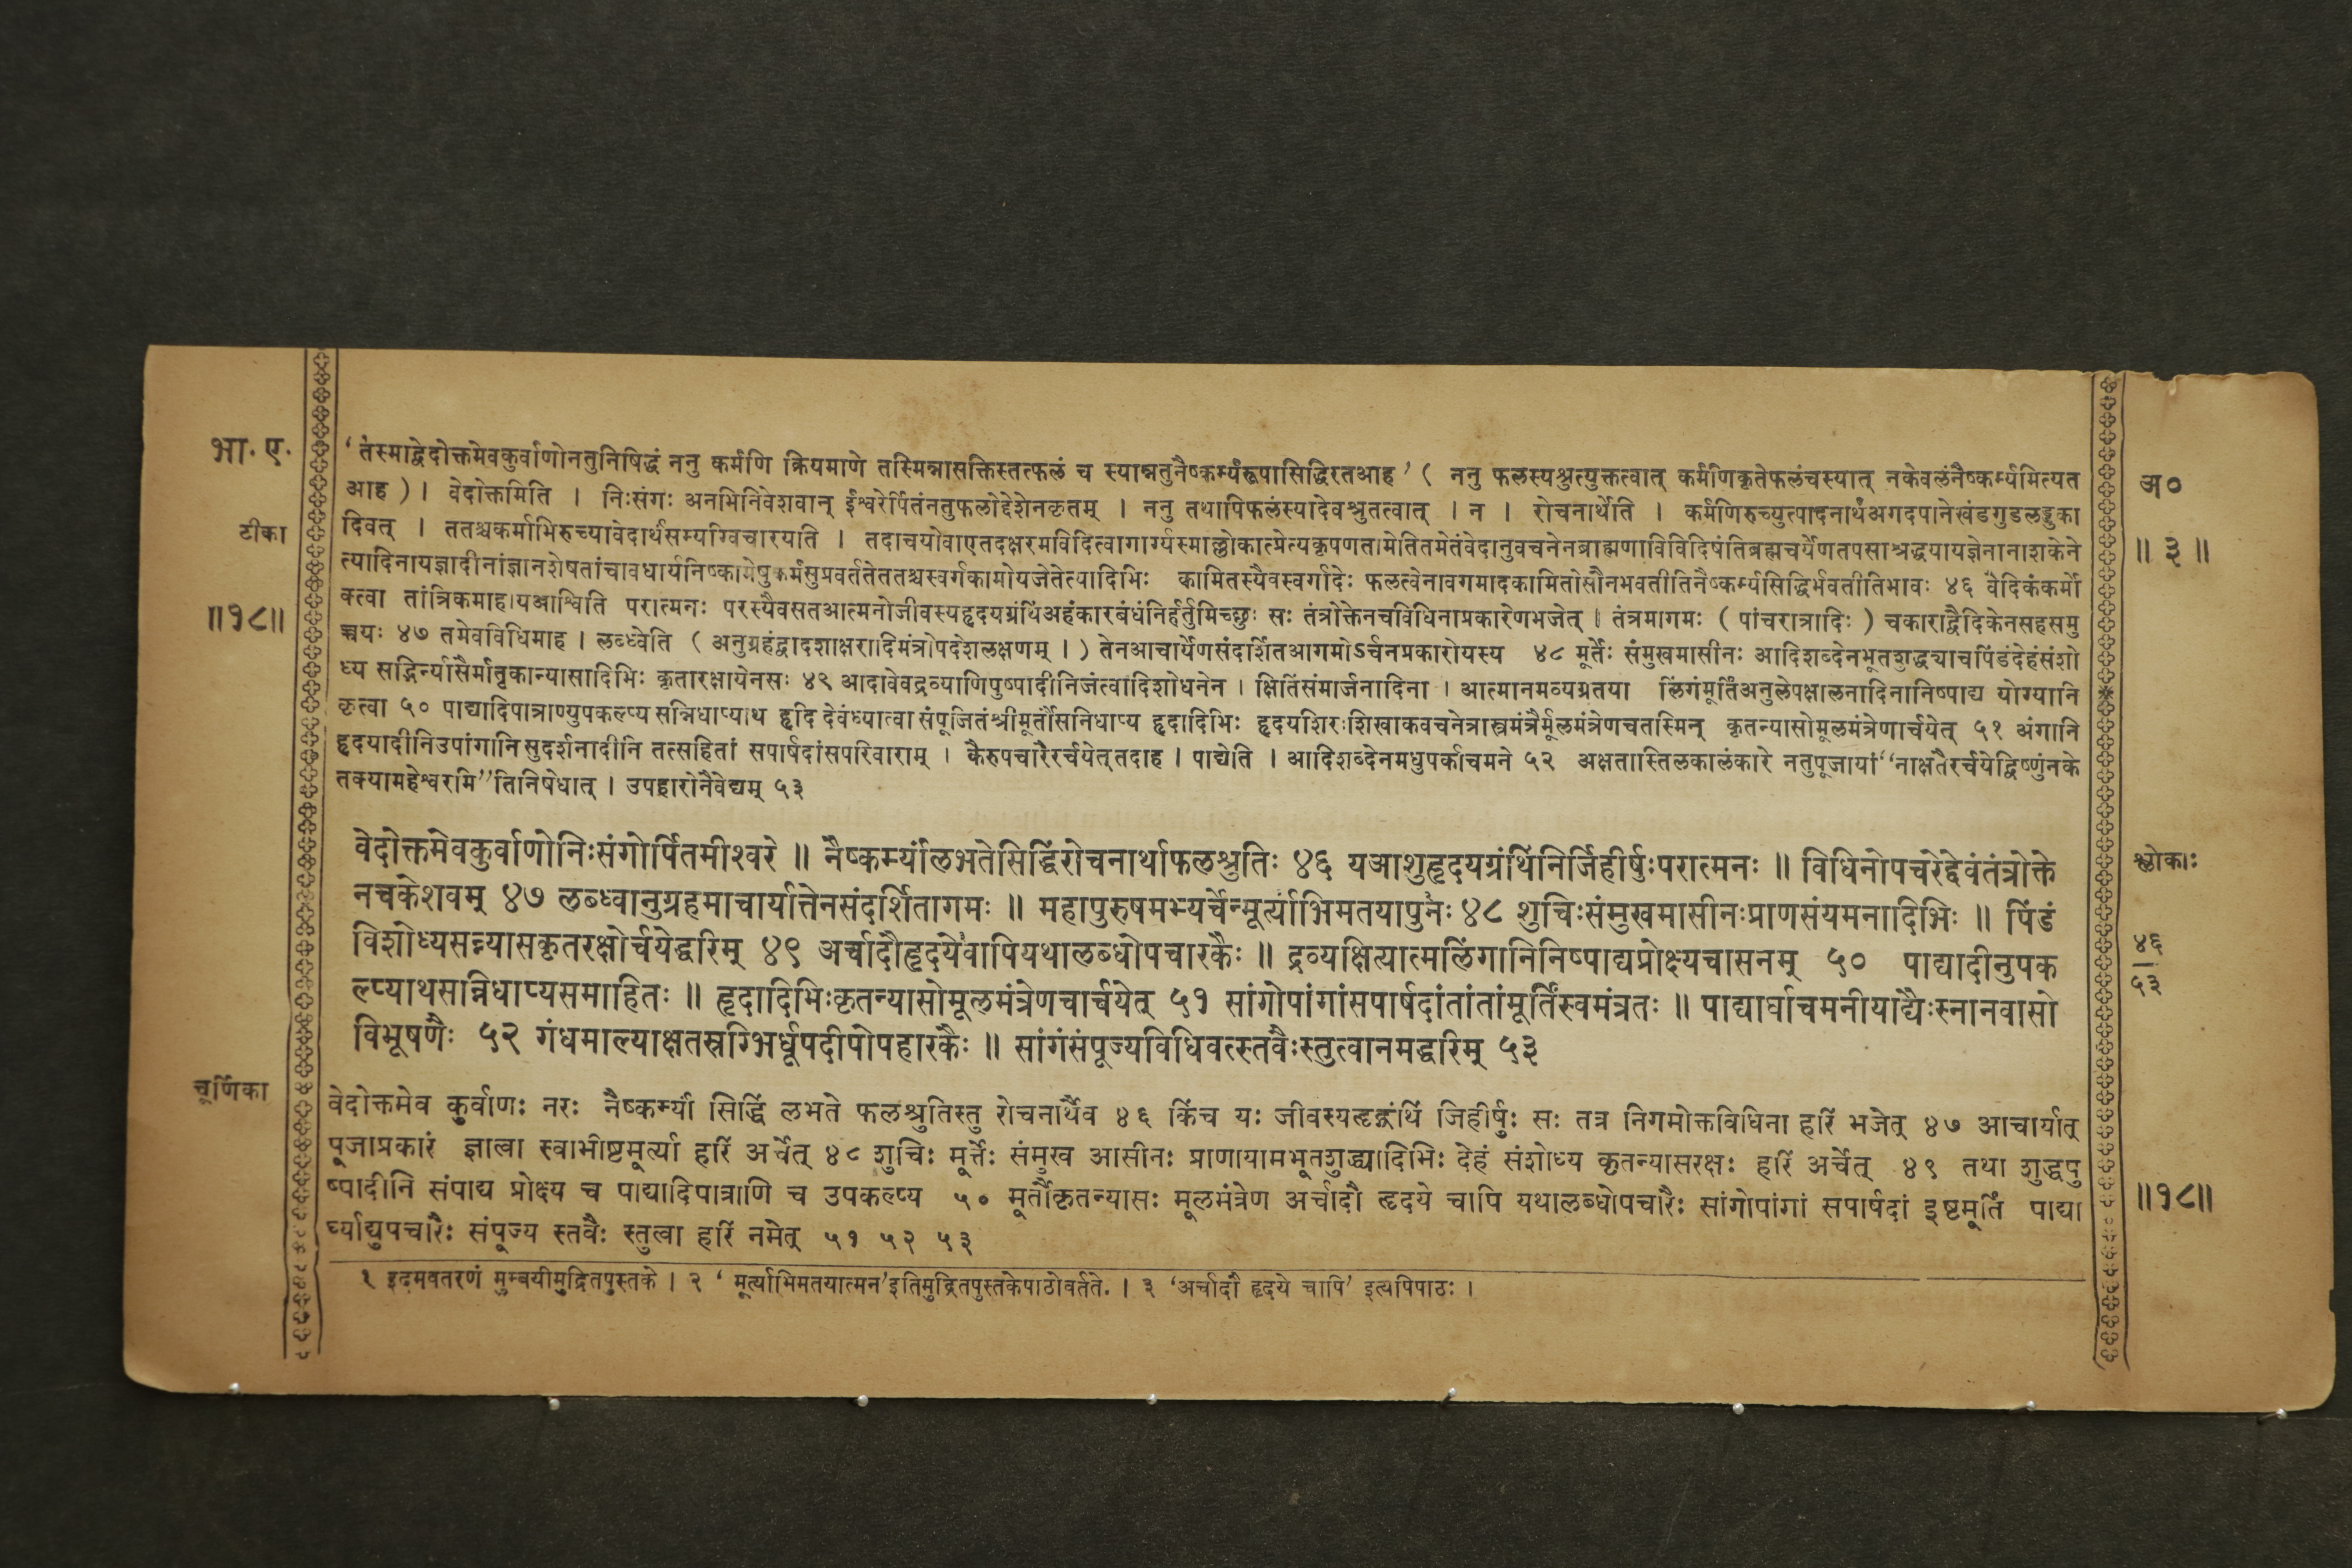 भा. ए.
टीका
॥१८॥
'तंस्माद्वेदोक्तमेवकुर्वाणोनतुनिषिद्धं ननु कर्मणि क्रियमाणे तस्मिन्नासक्तिस्तत्फलं च स्यान्नतुनैष्कर्म्यरूपासिद्धिरतआह' ( ननु फलस्यश्रुत्युक्तत्वात् कर्मणिकृतेफलंचस्यात् नकेवलंनैष्कर्म्यमित्यत
आह ) । वेदोक्तमिति । निःसंगः अनभिनिवेशवान् ईश्वरेर्पितंनतुफलोद्देशेनकृतम् । ननु तथापिफलंस्यादेवश्रुतत्वात् । न । रोचनार्थेति । कर्मणिरुच्युत्पादनार्थंअगदपानेखंडगुडलड्डुका
दिवत् । ततश्चकर्माभिरुच्यावेदार्थसम्यग्विचारयति । तदाचयोवाएतदक्षरमविदित्वागार्ग्यस्माल्लोकात्प्रेत्यकृपणतामेतितमेतंवेदानुवचनेनब्राह्मणाविविदिषंतिब्रह्मचर्येणतपसाश्रद्धयायज्ञेनानाशकेने
त्यादिनायज्ञादीनांज्ञानशेषतांचावधार्यनिष्कामेषुकर्मसुप्रवर्ततेततश्चस्वर्गकामोयजेतेत्यादिभिः कामितस्यैवस्वर्गादेः फलत्वेनावगमादकामितोसौनभवतीतिनैष्कर्म्यसिद्धिर्भवतीतिभावः ४६ वैदिकंकर्मो
क्त्वा तांत्रिकमाह।यआश्विति परात्मनः परस्यैवसतआत्मनोजीवस्यहृदयग्रंथिअहंकारबंधंनिर्हर्तुमिच्छुः सः तंत्रोक्तेनचविधिनाप्रकारेणभजेत् । तंत्रमागमः ( पांचरात्रादिः ) चकाराद्वैदिकेनसहसमु
च्चयः ४७ तमेवविधिमाह । लब्ध्वेति ( अनुग्रहंद्वादशाक्षरादिमंत्रोपदेशलक्षणम् । ) तेनआचार्येणसंदर्शितआगमोऽर्चनप्रकारोयस्य ४८ मूर्तेः संमुखमासीनः आदिशब्देनभूतशुद्ध्याचपिंडंदेहंसंशो
ध्य सद्भिर्न्यासैर्मातृकान्यासादिभिः कृतारक्षायेनसः ४९ आदावेवद्रव्याणिपुष्पादीनिजंत्वादिशोधनेन । क्षितिंसंमार्जनादिना । आत्मानमव्यग्रतया लिंगंमूर्तिंअनुलेपक्षालनादिनानिष्पाद्य योग्यानि
कृत्वा ५० पाद्यादिपात्राण्युपकल्प्य सन्निधाप्याथ हृदि देवंध्यात्वा संपूजितंश्रीमूर्तौसनिधाप्य हृदादिभिः हृदयशिरःशिखाकवचनेत्रास्त्रमंत्रैर्मूलमंत्रेणचतस्मिन् कृतन्यासोमूलमंत्रेणार्चयेत् ५१ अंगानि
हृदयादीनिउपांगानि सुदर्शनादीनि तत्सहितां सपार्षदांसपरिवाराम् । कैरुपचारैरर्चयेत्तदाह । पाद्येति । आदिशब्देनमधुपर्काचमने ५२ अक्षतास्तिलकालंकारे नतुपूजायां"नाक्षतैरर्चयेद्विष्णुंनके
तक्यामहेश्वरमि"तिनिषेधात् । उपहारोनैवेद्यम् ५३
वेदोक्तमेवकुर्वाणोनिःसंगोर्पितमीश्वरे ॥ नैष्कर्म्यांलभतेसिद्धिंरोचनार्थाफलश्रुतिः ४६ यआशुहृदयग्रंथिंनिर्जिहीर्षुःपरात्मनः ॥ विधिनोपचरेद्देवंतंत्रोक्ते
नचकेशवम् ४७ लब्ध्वानुग्रहमाचार्यात्तेनसंदर्शितागमः ॥ महापुरुषमभ्यर्चेन्मूर्त्याभिमतयापुनः ४८ शुचिःसंमुखमासीनःप्राणसंयमनादिभिः ॥ पिंडं
विशोध्यसन्न्यासकृतरक्षोर्चयेद्धरिम् ४९ अर्चादौहृदयेवापियथालब्धोपचारकैः ॥ द्रव्यक्षित्यात्मलिंगानिनिष्पाद्यप्रोक्ष्यचासनम् ५० पाद्यादीनुपक
ल्प्याथसन्निधाप्यसमाहितः ॥ हृदादिभिःकृतन्यासोमूलमंत्रेणचार्चयेत् ५१ सांगोपांगांसपार्षदांतांतांमूर्तिंस्वमंत्रतः ॥ पाद्यार्घाचमनीयाद्यैःस्नानवासो
विभूषणैः ५२ गंधमाल्याक्षतस्रग्भिर्धूपदीपोपहारकैः ॥ सांगंसंपूज्यविधिवत्स्तवैःस्तुत्वानमद्धरिम् ५३
चूर्णिका
वेदोक्तमेव कुर्वाणः नरः नैष्कर्म्यां सिद्धिं लभते फलश्रुतिस्तु रोचनार्थैव ४६ किंच यः जीवस्यहृद्ग्रंथिं जिहीर्षुः सः तत्र निगमोक्तविधिना हरिं भजेत् ४७ आचार्यात्
पूजाप्रकारं ज्ञात्वा स्वाभीष्टमूर्त्या हरिं अर्चेत् ४८ शुचिः मूर्त्तेः संमुख आसीनः प्राणायामभूतशुद्ध्यादिभिः देहं संशोध्य कृतन्यासरक्षः हरिं अर्चेत् ४९ तथा शुद्धपु
ष्पादीनि संपाद्य प्रोक्ष्य च पाद्यादिपात्राणि च उपकल्प्य ५० मूर्तौकृतन्यासः मूलमंत्रेण अर्चादौ हृदये चापि यथालब्धोपचारैः सांगोपांगां सपार्षदां इष्टमूर्तिं पाद्या
र्घ्याद्युपचारैः संपूज्य स्तवैः स्तुत्वा हरिं नमेत् ५१ ५२ ५३
१ इदमवतरणं मुम्बयीमुद्रितपुस्तके । २ ' मूर्त्याभिमतयात्मन'इतिमुद्रितपुस्तकेपाठोवर्तते. । ३ 'अर्चादौ हृदये चापि' इत्यपिपाठः ।
अ०
॥ ३ ॥
श्लोकाः
४६
५३
॥१८॥